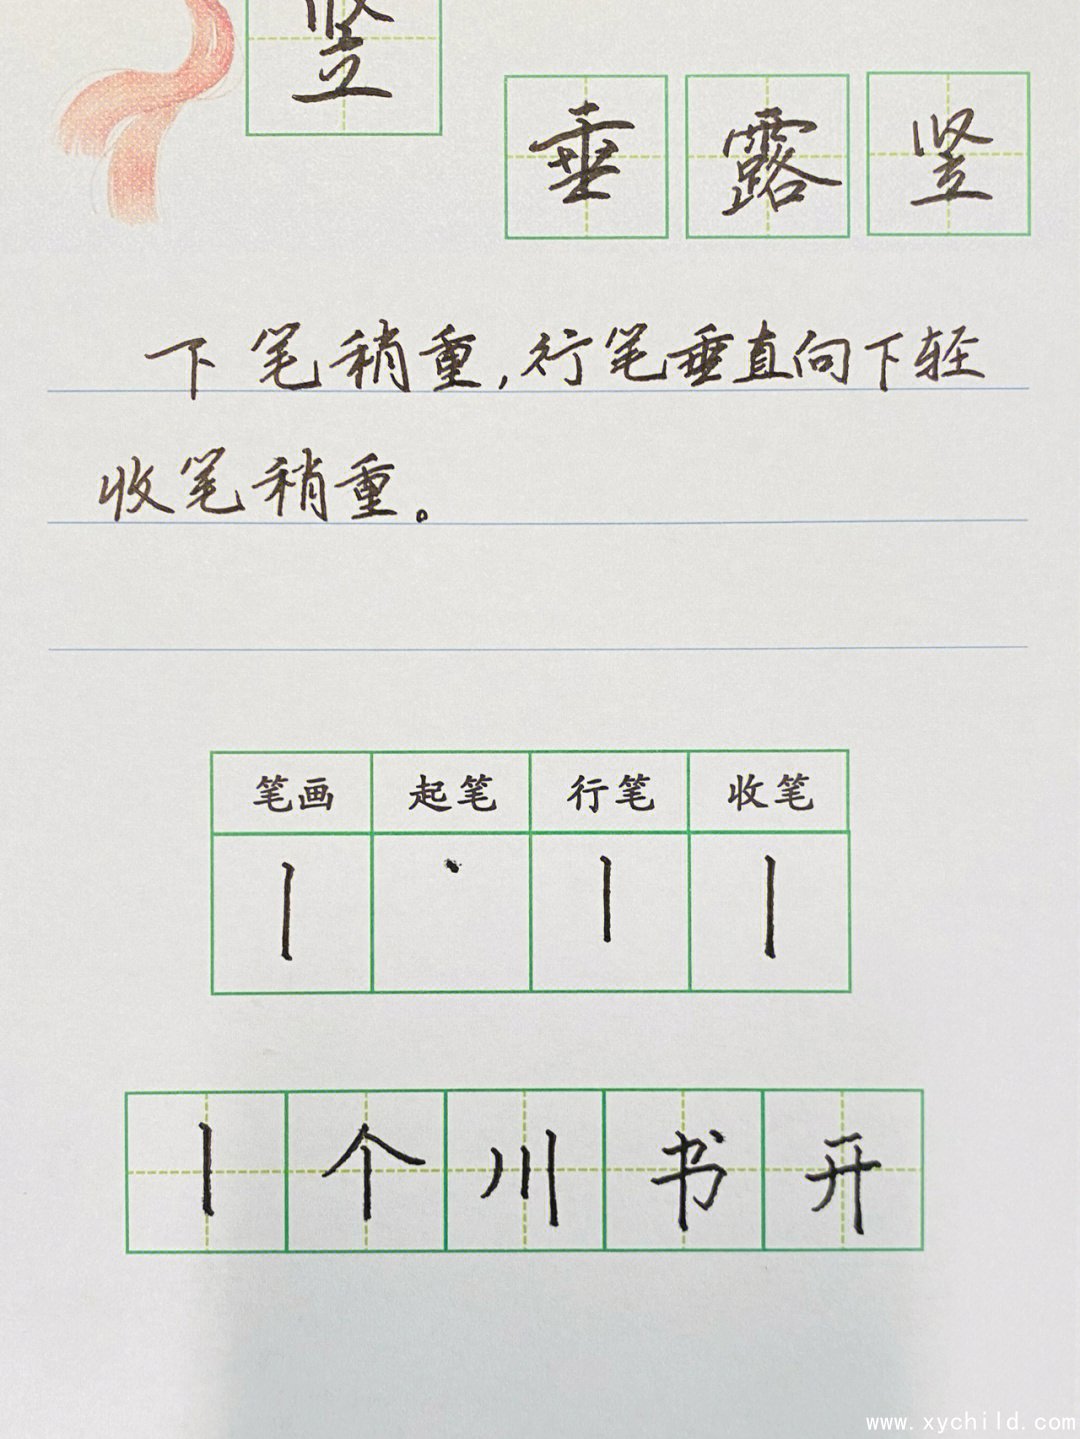 竖
垂露竖
下笔稍重,行笔垂直向下轻
收笔稍重。
笔画 起笔 行笔 收笔
丨 丶 丨 丨
丨个川书开
www.xychild.com